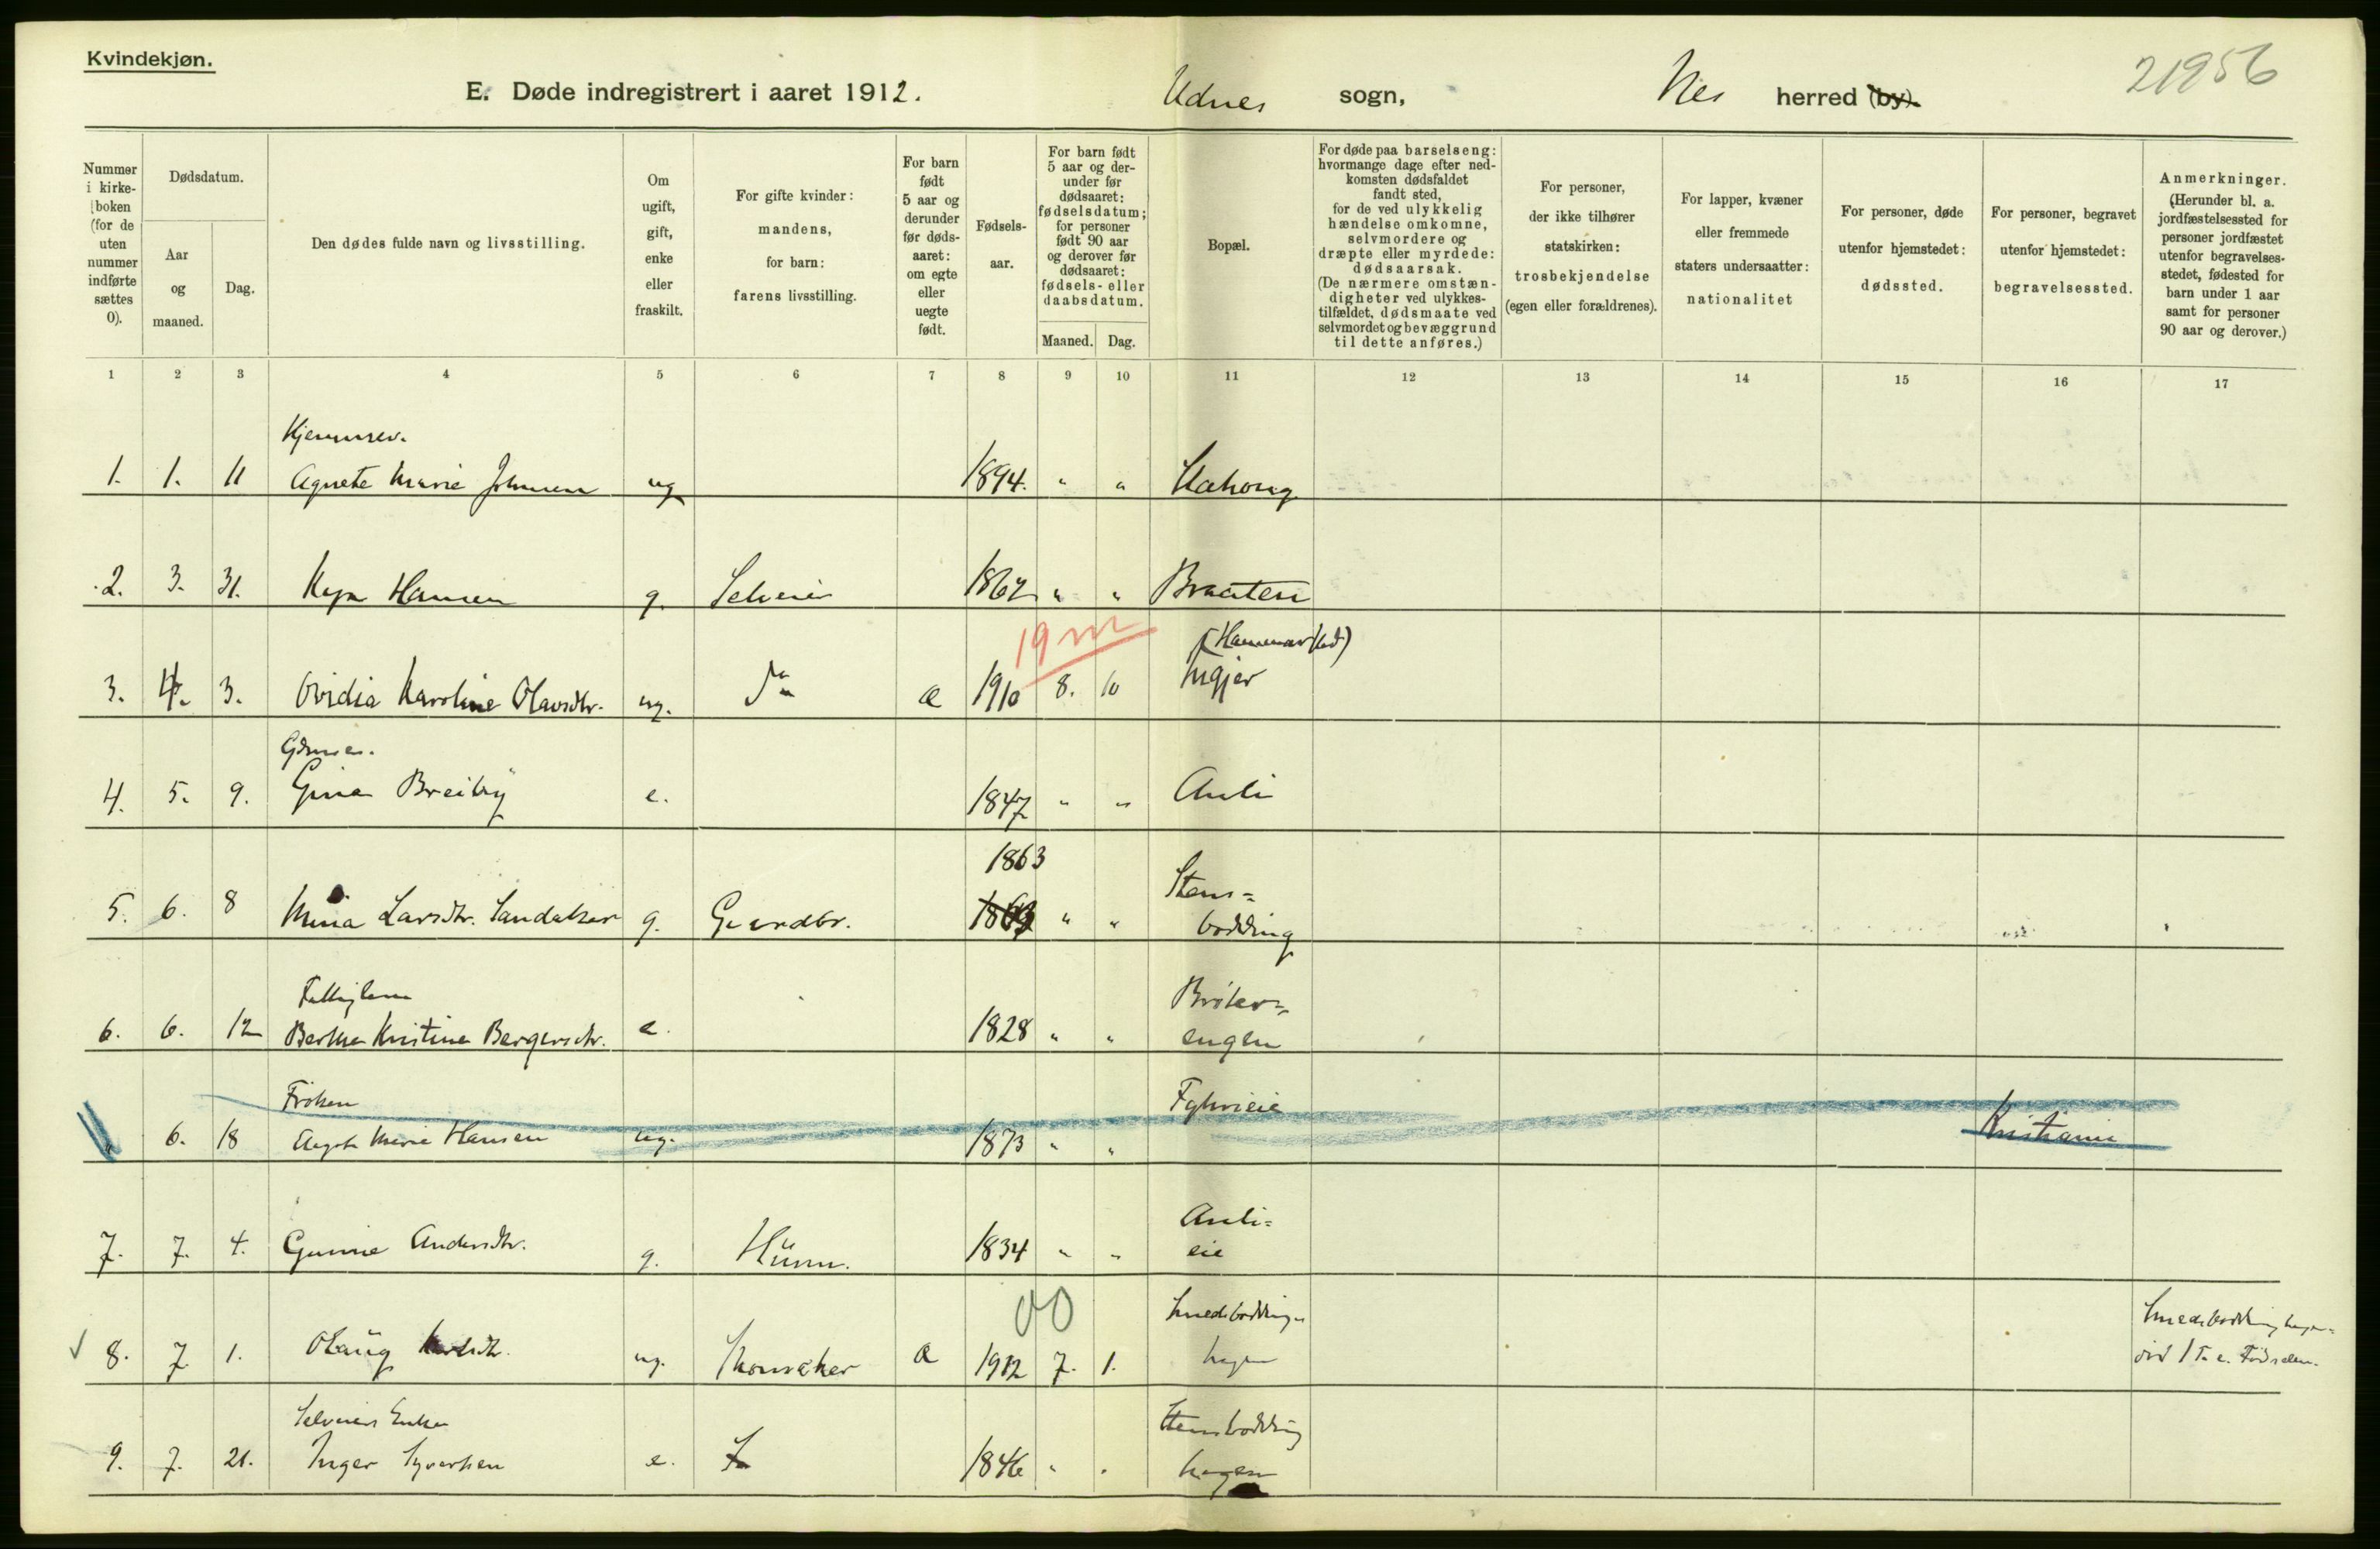 Kvindekjøn.
21956
E. Døde indregistrert i aaret 1912.
Udnes sogn,
Nes herred (by).
Nummer i kirke-
boken
(for de
uten
nummer
indførte
sættes
0).
Dødsdatum.
Aar
og
maaned.
Dag.
Den dødes fulde navn og livsstilling.
Om
ugift,
gift,
enke
eller
fraskilt.
For gifte kvinder:
mandens,
for barn:
farens livsstilling.
For barn
født
5 aar og
derunder
før døds-
aaret:
om egte
eller
uegte
født.
Fødsels-
aar.
For barn født
5 aar og der-
under før
dødsaaret:
fødselsdatum;
for personer
født 90 aar
og derover før
dødsaaret:
fødsels- eller
daabsdatum.
Maaned. Dag.
Bopæl.
For døde paa barselseng:
hvormange dage efter ned-
komsten dødsfaldet
fandt sted,
for de ved ulykkelig
hændelse omkomne,
selvmordere og
dræpte eller myrdede:
dødsaarsak.
(De nærmere omstæn-
digheter ved ulykkes-
tilfældet, dødsmaate ved
selvmordet og bevæggrund
til dette anføres.)
For personer,
der ikke tilhører
statskirken:
trosbekjendelse
(egen eller forældrenes).
For lapper, kvæner
eller fremmede
staters undersaatter:
nationalitet
For personer, døde
utenfor hjemstedet:
dødssted.
For personer, begravet
utenfor hjemstedet:
begravelsessted.
Anmerkninger.
(Herunder bl. a.
jordfæstelsessted for
personer jordfæstet
utenfor begravelses-
stedet, fødested for
barn under 1 aar
samt for personer
90 aar og derover.)
1 2 3 4 5 6 7 8 9 10 11 12 13 14 15 16 17
1. 1. 11 Agnete Marie Johnsen ug 1894. " "
2. 3. 31. Hansen g. Selveier 1862 " " Braaten
19 m
(Hammerstad)
3. 4. 3. Ovidia Karoline Olavsdtr. ug. æ 1910 8. 10
4. 5. 9. Gina Breiby e. 1847 " " Auli
1863
Stens=
5. 6. 8 Mina Larsdtr. Sandaker g. Gaardbr. " " bødding
Fattiglem
6. 6. 12 Berthe Kristine Bergersdtr. e. 1828 " " engen
Frøken
" 6. 18 Marie Hansen ug. 1873 " " Kristiania
Auli=
7. 7. 4. Gunine Andersdtr. g. Husm. 1834 " " eie
00
8. 7. 1. Olaug ug. Skomaker æ 1912 7. 1. hagen
Selveiers Enke
Stensbødding
9. 7. 21. Inger Syversen e. 1846 " " hagen